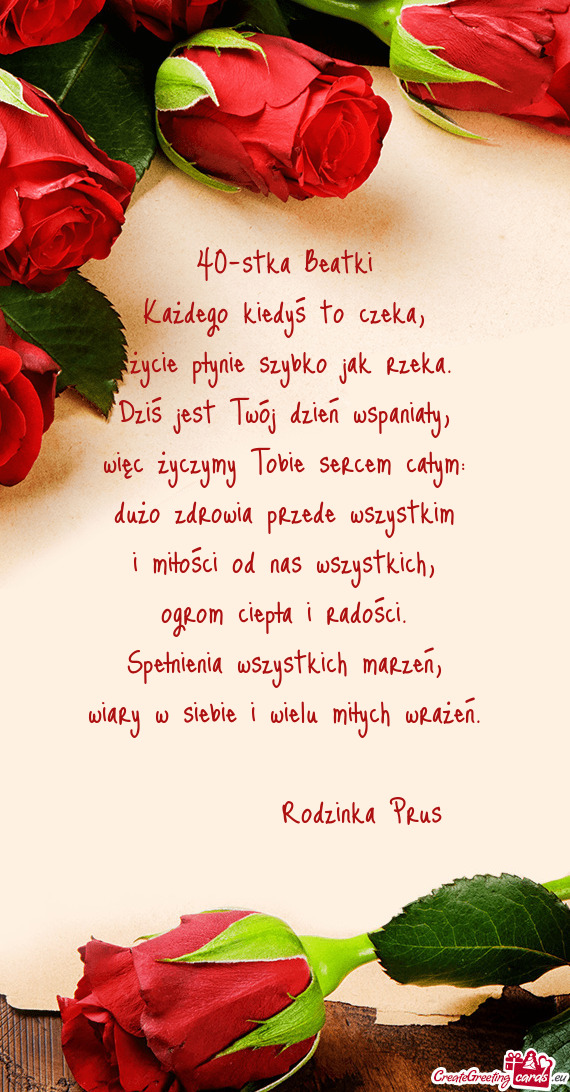 40-stka Beatki
Każdego kiedyś to czeka,
życie płynie szybko jak rzeka.
Dziś jest Twój dzień wspaniały,
więc życzymy Tobie sercem całym:
dużo zdrowia przede wszystkim
i miłości od nas wszystkich,
ogrom ciepła i radości.
Spełnienia wszystkich marzeń,
wiary w siebie i wielu miłych wrażeń.
Rodzinka Prus
CreateGreetingcards.eu